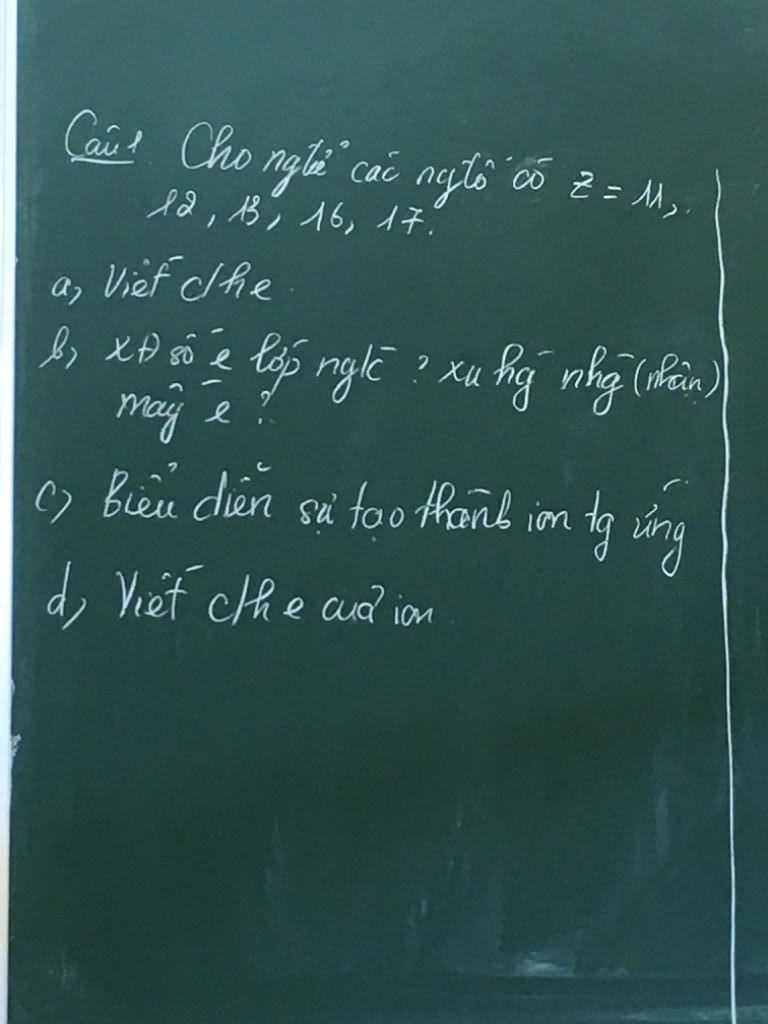 Câu 1. Cho ngtử các ngtố có Z = 11,
12, 13, 16, 17.
a, Viết c/h e.
b, XĐ số e lớp ngtc? xu hg nhg (nhân)
mấy e?
c) Biểu diễn sự tạo thành ion tg ứng
d, Viết c/h e của ion.